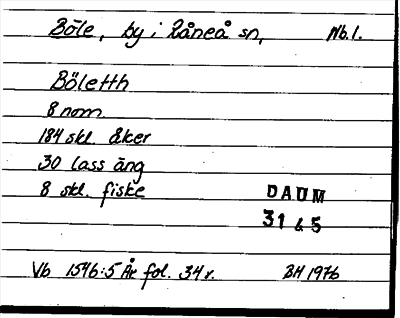 Böle, by i Råneå sn, Nb.l.
Böletth
8 nom.
184 skl. åker
30 lass äng
8 skl. fiske
DAUM
31 65
Vb 1546:5 År fol. 34 r. BH 1976